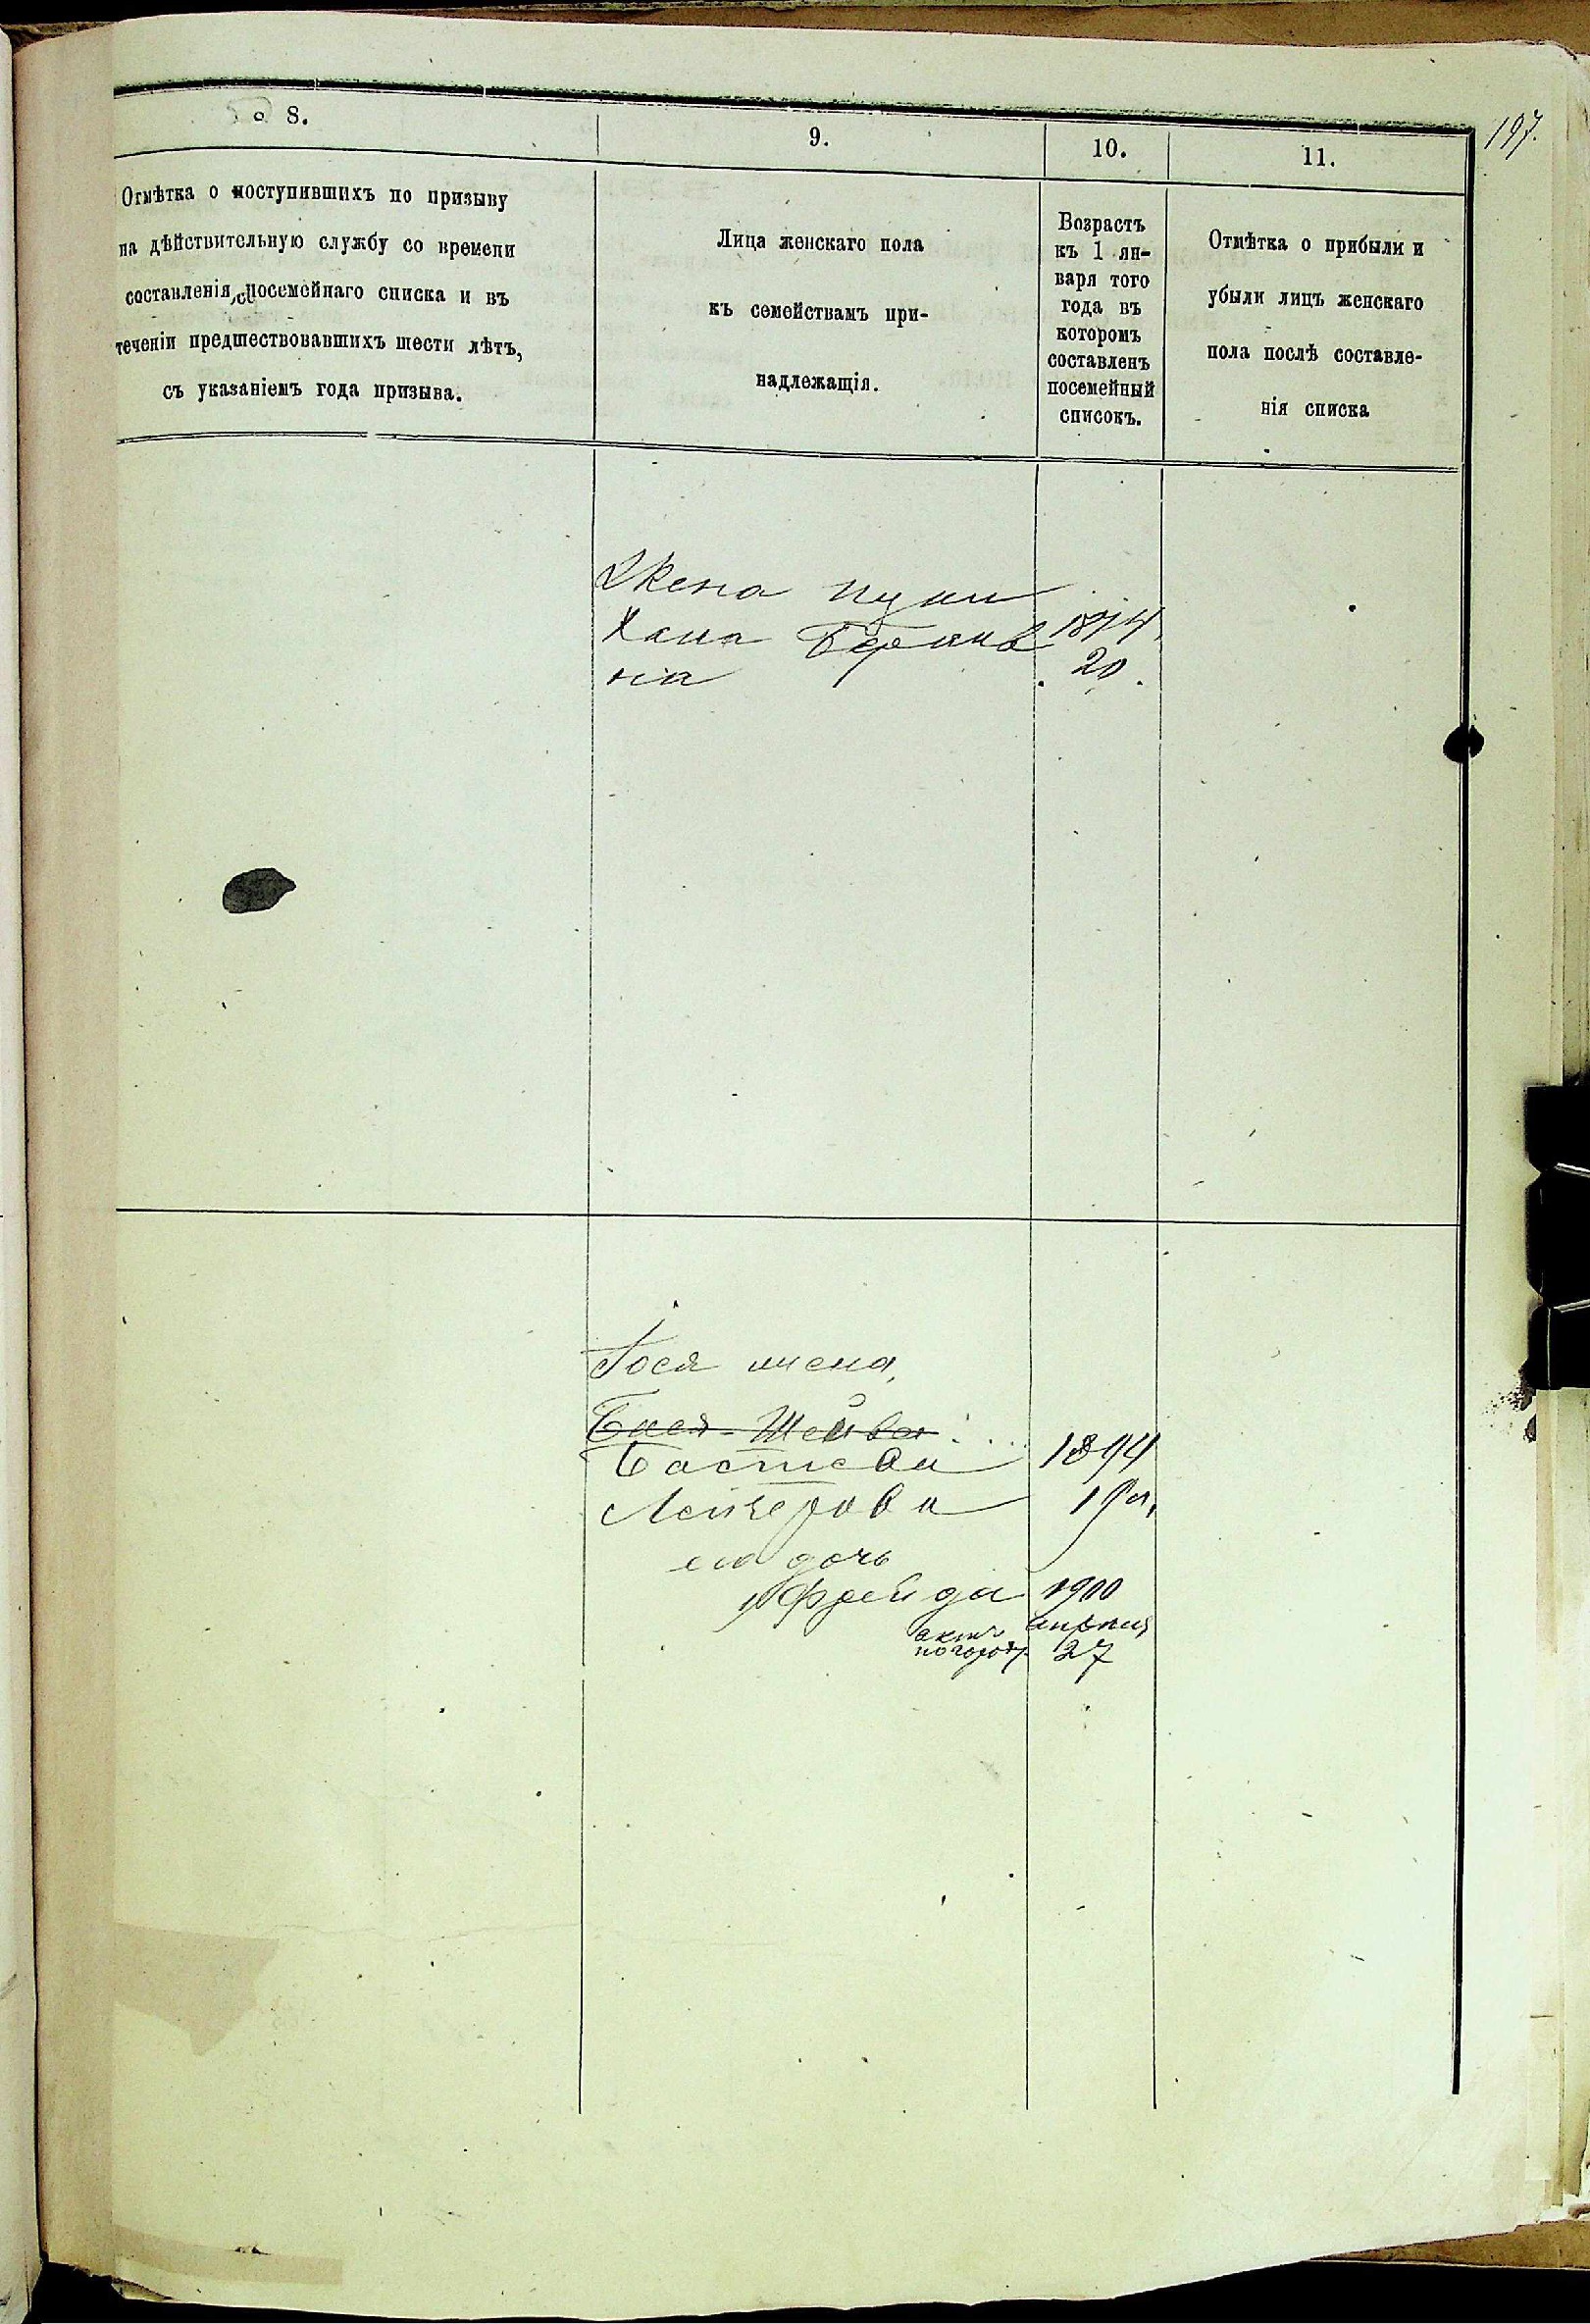 197.
8.
9.
10.
11.
Отмѣтка о поступившихъ по призыву
на дѣйствительную службу со времени
составленія посемейнаго списка и въ
теченіи предшествовавшихъ шести лѣтъ,
съ указаніемъ года призыва.
Лица женскаго пола
къ семействамъ при-
надлежащія.
Возрастъ
къ 1 ян-
варя того
года въ
котором
составленъ
посемейный
списокъ.
Отмѣтка о прибыли и
убыли лицъ женскаго
пола послѣ составле-
нія списка
Жена
Хана 1874
на 20.
жена
Бася-Шейва
1894
Лейзерова
его дочь
Фрейда 1900
актъ апрѣля
27